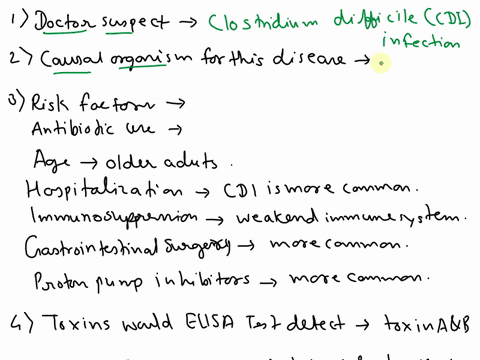 1) Doctor suspect → Clostridium difficile (CDI)
infection
2) Causal organism for this disease →
3) Risk factors →
Antibiotic use →
Age → older aduts.
Hospitalization → CDI is more common.
Immunosuppression → weakend immune system.
Gastrointestinal Surgery → more common.
Proton pump inhibitors → more common.
4) Toxins would ELISA Test detect → toxin A&B